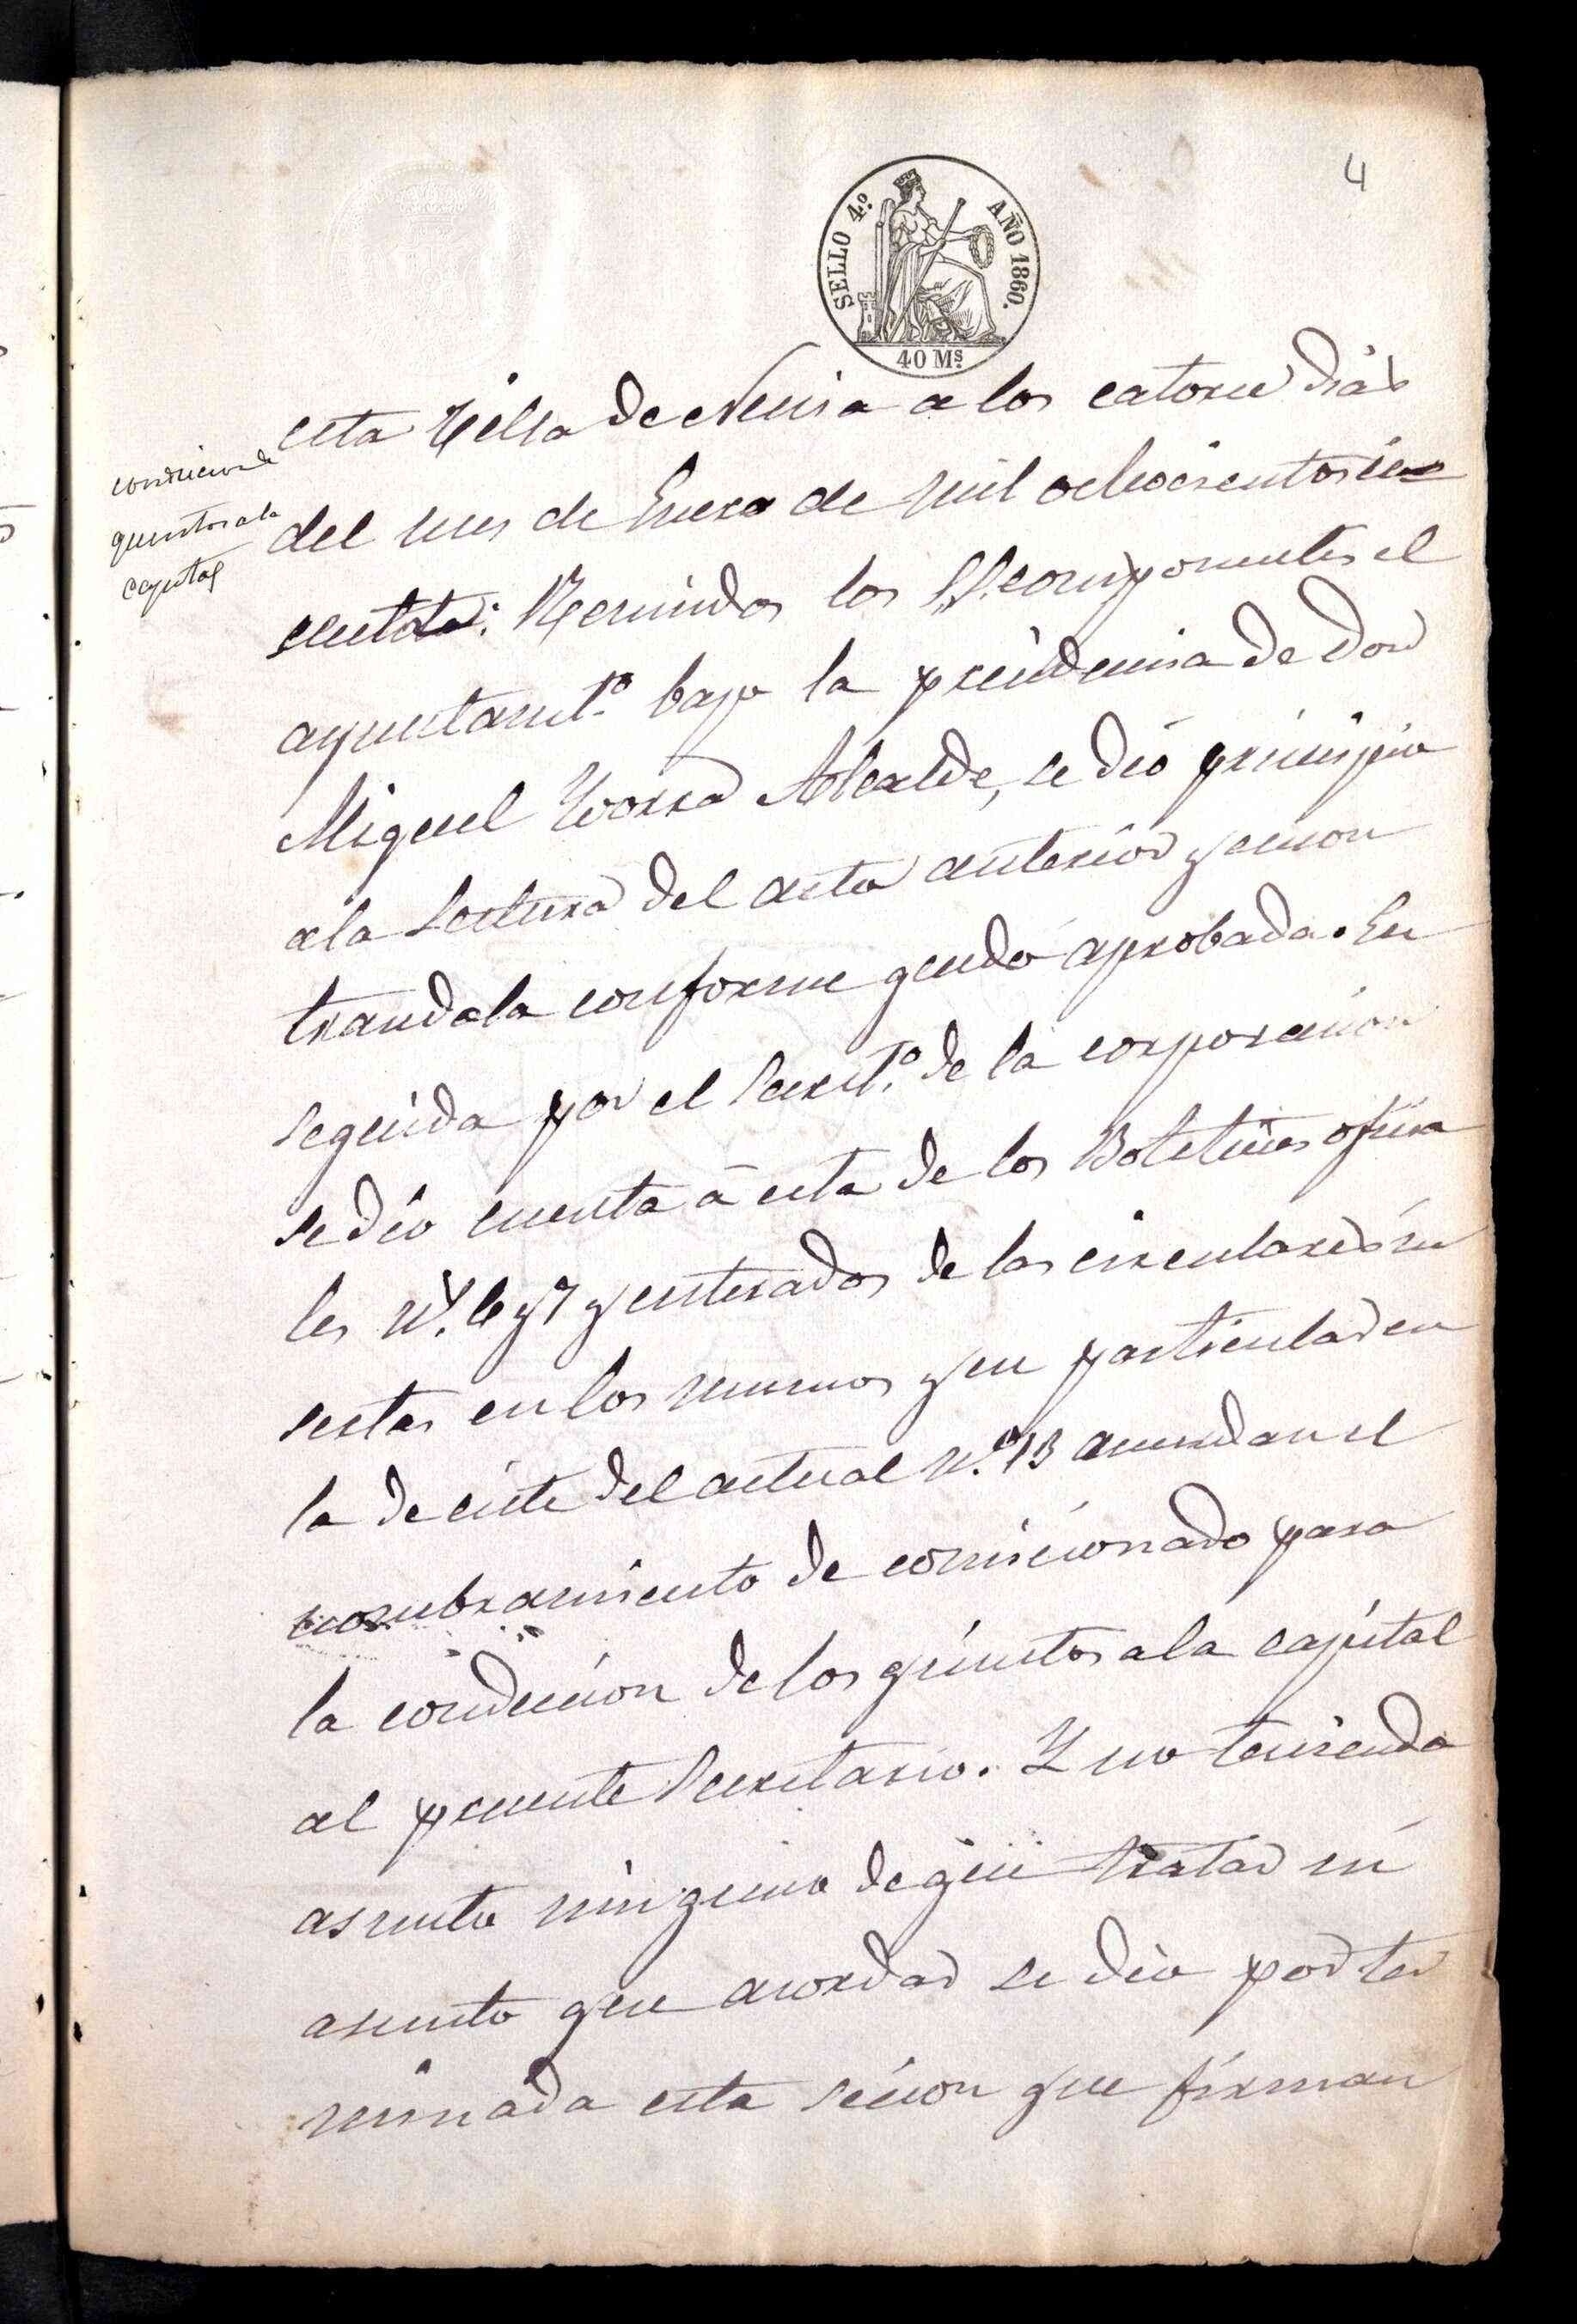 4
SELLO 4º AÑO 1860.
40 Ms
conduccion de
quintos a la
capital
esta Villa de Nucia a los catorce dias
del mes de Enero de mil ochocientos se
senta: Reunidos los S.S. componentes el
ayuntamtº bajo la presidencia de Don
Miguel Ivorra Alcalde, se dió principio
a la Lectura del acta anterior y encon
trandola conforme quedó aprobada. En
seguida por el Secretº de la corporacion
se dió cuenta á esta de los Boletines oficia
les nº. 6 y 7 y enterados de las circulares in
sertas en los mismos y en particular en
la de siete del actual nº 13 acuerdan el
nombramiento de comicionado para
la conduccion de los quintos a la capital
al presente Secretario. Y no teniendo
asunto ninguno de que tratar ni
asunto que acordar se dió por ter
minada esta secion que firman